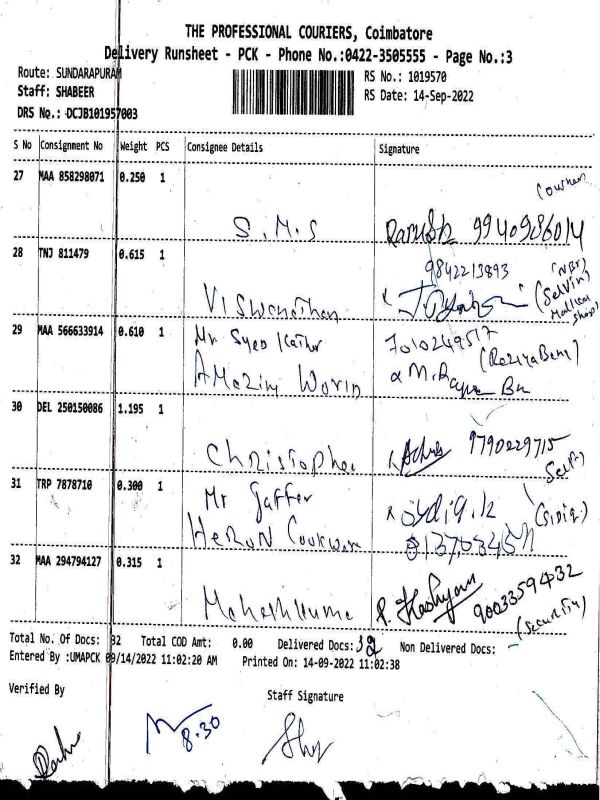 THE PROFESSIONAL COURIERS, Coimbatore
Delivery Runsheet - PCK - Phone No.:0422-3505555 - Page No.:3
Route: SUNDARAPURAM
RS No.: 1019570
Staff: SHABEER
RS Date: 14-Sep-2022
DRS No.: DCJB101957003
S No Consignment No Weight PCS Consignee Details Signature
27 MAA 858298071 0.250 1
S.M.S
28 TNJ 811479 0.615 1
9842213893
Viswanathan
29 MAA 566633914 0.610 1
Mr Syed Kather
7010249517
30 DEL 250150086 1.195 1
Christopher
9790229715
31 TRP 7878710 0.300 1
Mr Gaffer
32 MAA 294794127 0.315 1
9003359432
(Security)
Total No. Of Docs: 32 Total COD Amt: 0.00 Delivered Docs: 32 Non Delivered Docs: -
Entered By :UMAPCK 09/14/2022 11:02:20 AM Printed On: 14-09-2022 11:02:38
Verified By
Staff Signature
8.30